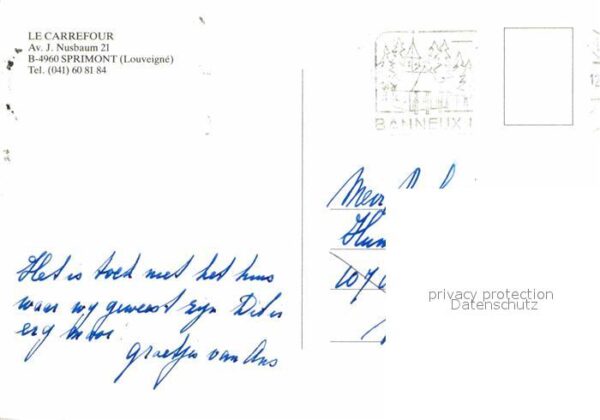 LE CARREFOUR
Av. J. Nusbaum 21
B-4960 SPRIMONT (Louveigné)
Tel. (041) 60 81 84
BANNEUX
Het is toch niet het huis
waar wy geweest zyn Dit is
erg mooi
groetjes van Ans
privacy protection
Datenschutz